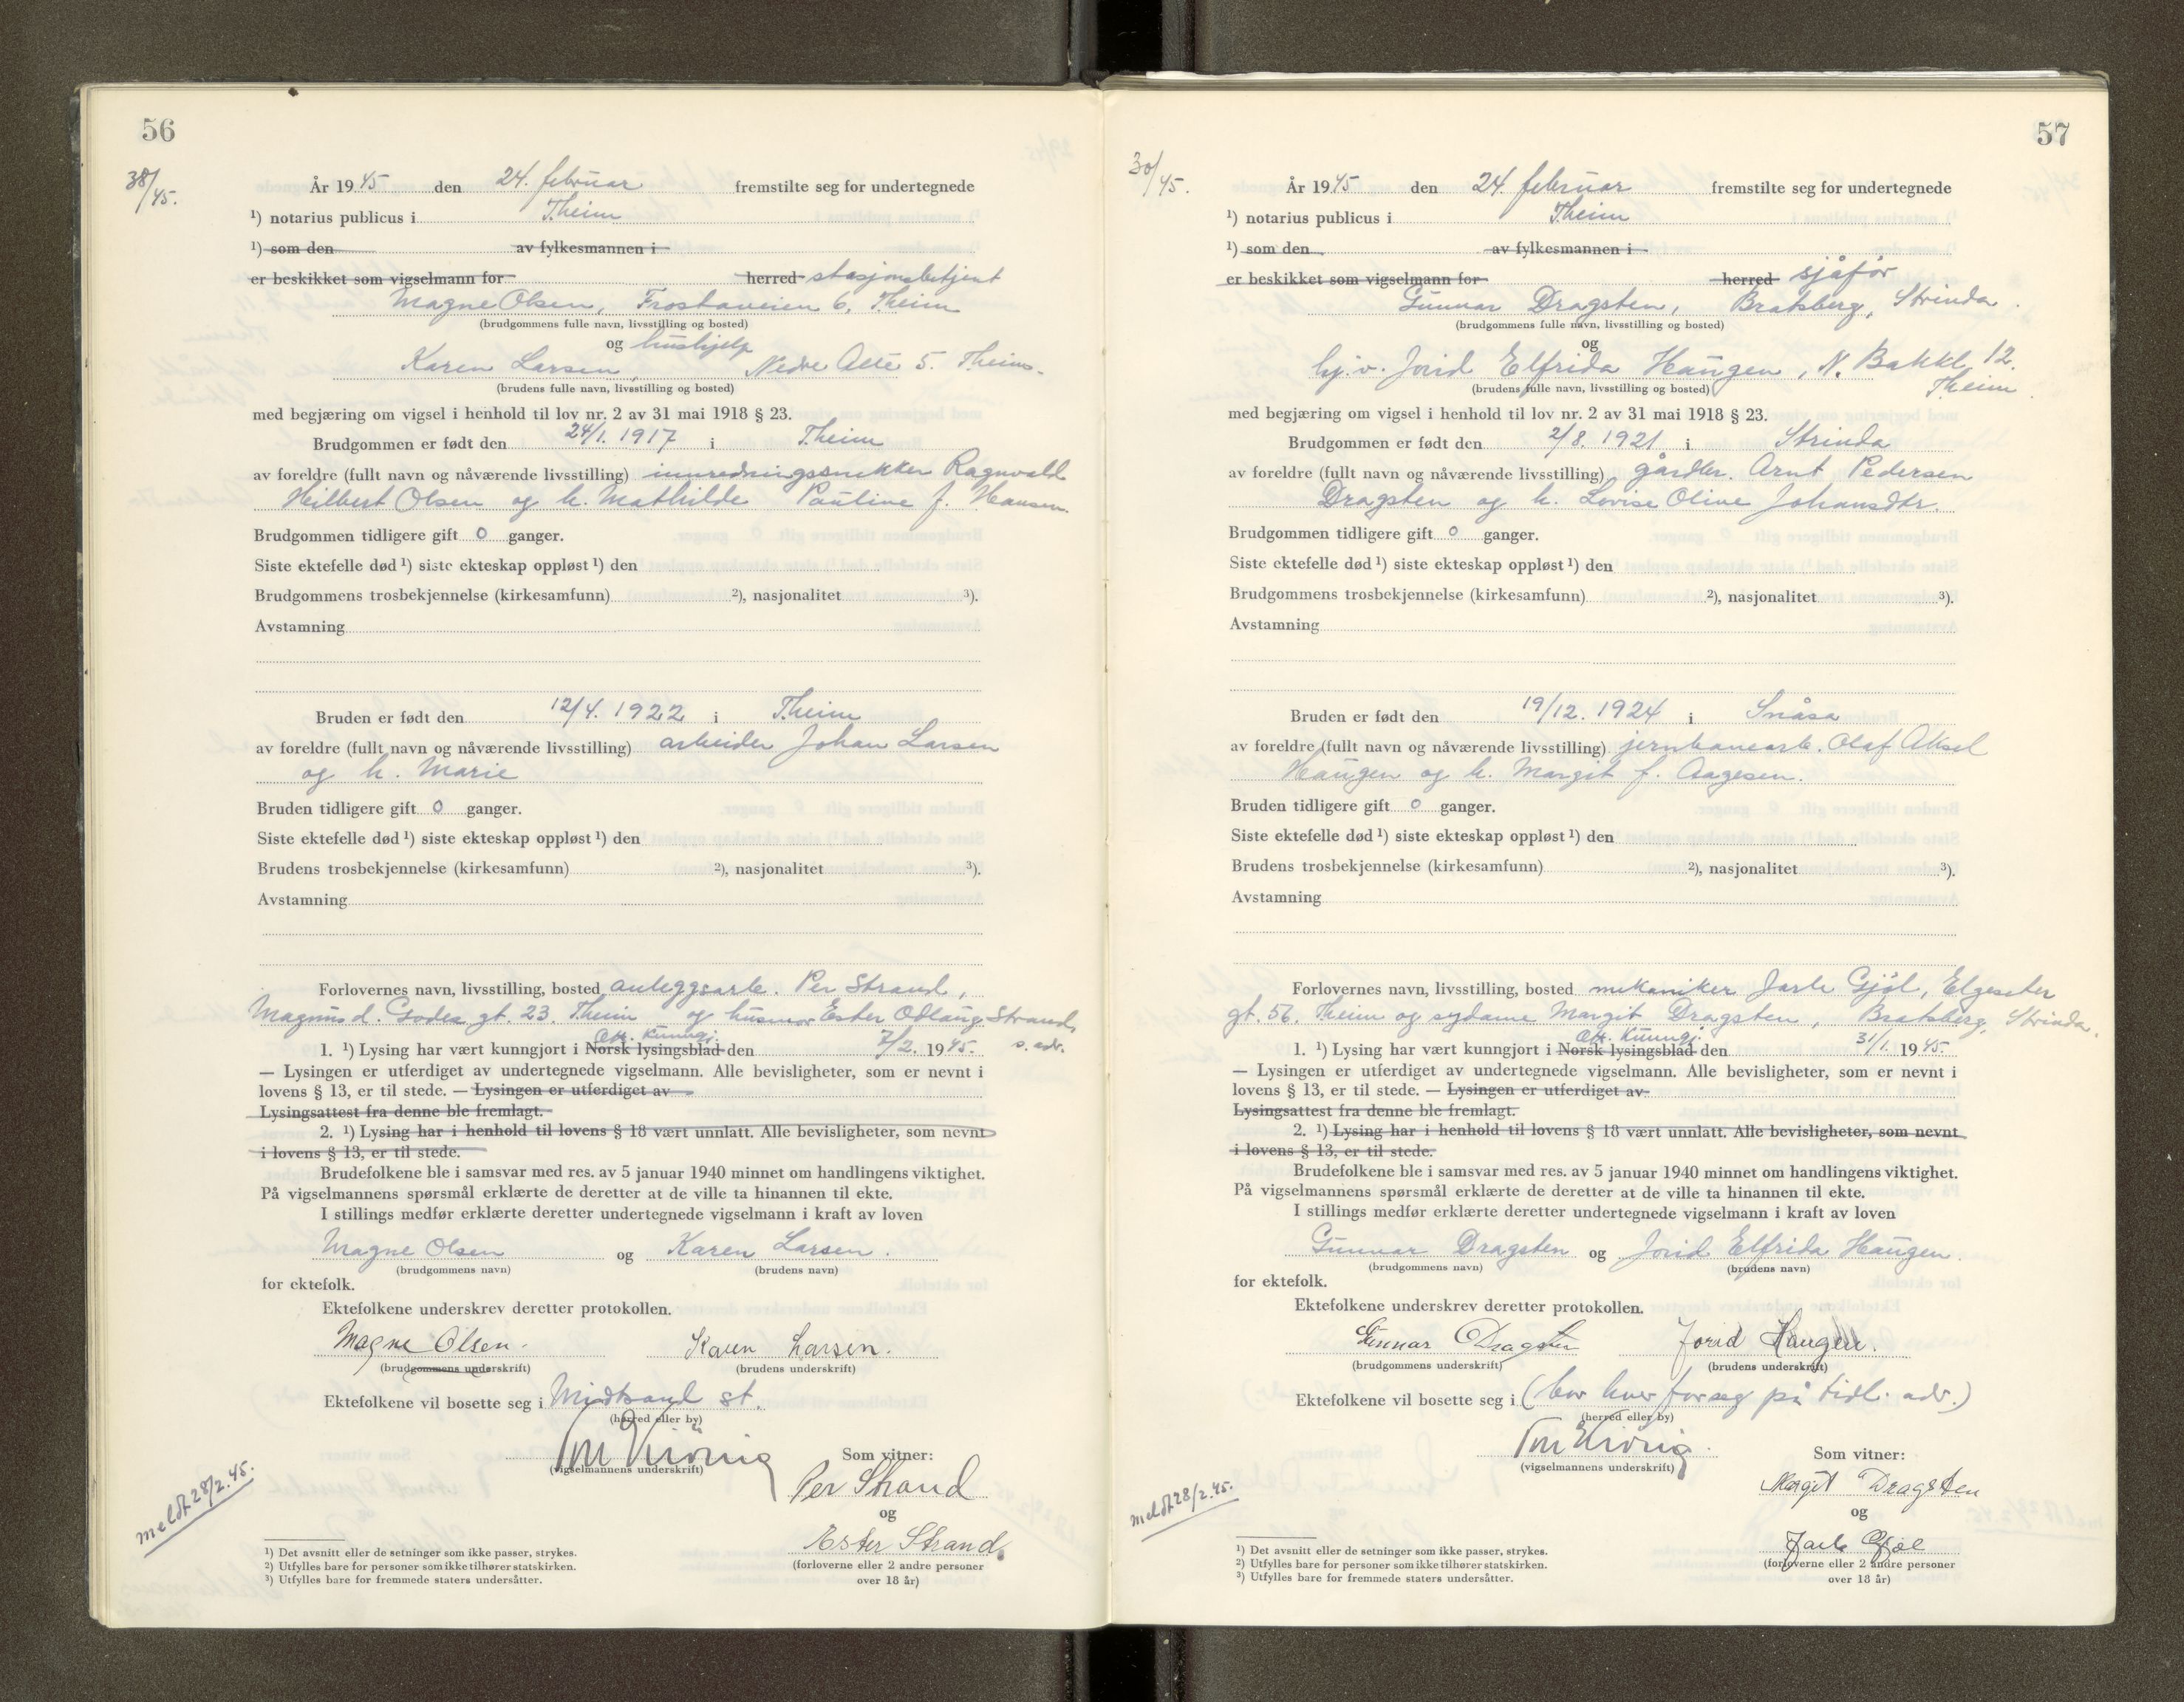 56
38/45.
År 1945 den 24. februar fremstilte seg for undertegnede
¹) notarius publicus i T.heim
¹) som den av fylkesmannen i
er beskikket som vigselmann for herred stasjonsbetjent
Magne Olsen, Frostaveien 6, T.heim
(brudgommens fulle navn, livsstilling og bosted)
og hushjelp
Karen Larsen, Nedre Alle 5. T.heim.
(brudens fulle navn, livsstilling og bosted)
med begjæring om vigsel i henhold til lov nr. 2 av 31 mai 1918 § 23.
Brudgommen er født den 24/1. 1917 i T.heim
av foreldre (fullt navn og nåværende livsstilling) innredningssnekker Ragnvald
Hilbert Olsen og h. Mathilde Pauline f. Hansen.
Brudgommen tidligere gift 0 ganger.
Siste ektefelle død ¹) siste ekteskap oppløst ¹) den
Brudgommens trosbekjennelse (kirkesamfunn) ²), nasjonalitet ³).
Avstamning
Bruden er født den 12/4. 1922 i T.heim
av foreldre (fullt navn og nåværende livsstilling) arbeider Johan Larsen
og h. Marie
Bruden tidligere gift 0 ganger.
Siste ektefelle død ¹) siste ekteskap oppløst ¹) den
Brudens trosbekjennelse (kirkesamfunn) ²), nasjonalitet ³).
Avstamning
Forlovernes navn, livsstilling, bosted anleggsarb. Per Strand,
Magnus d. Godes gt. 23. T.heim og husmor Ester Odlaug Strand,
s. adr.
Off. Kunngj.
1. ¹) Lysing har vært kunngjort i Norsk lysingsblad den 7/2. 1945.
— Lysingen er utferdiget av undertegnede vigselmann. Alle bevisligheter, som er nevnt i
lovens § 13, er til stede. — Lysingen er utferdiget av
Lysingsattest fra denne ble fremlagt.
2. ¹) Lysing har i henhold til lovens § 18 vært unnlatt. Alle bevisligheter, som nevnt
i lovens § 13, er til stede.
Brudefolkene ble i samsvar med res. av 5 januar 1940 minnet om handlingens viktighet.
På vigselmannens spørsmål erklærte de deretter at de ville ta hinannen til ekte.
I stillings medfør erklærte deretter undertegnede vigselmann i kraft av loven
Magne Olsen og Karen Larsen.
(brudgommens navn) (brudens navn)
for ektefolk.
Ektefolkene underskrev deretter protokollen.
Magne Olsen. Karen Larsen.
(brudgommens underskrift) (brudens underskrift)
Ektefolkene vil bosette seg i Midtsand st.
(herred eller by)
(vigselmannens underskrift)
Som vitner:
Per Strand
og
Ester Strand.
(forloverne eller 2 andre personer
over 18 år)
meldt 28/2.45.
¹) Det avsnitt eller de setninger som ikke passer, strykes.
²) Utfylles bare for personer som ikke tilhører statskirken.
³) Utfylles bare for fremmede staters undersåtter.
57
30/45.
År 1945 den 24. februar fremstilte seg for undertegnede
¹) notarius publicus i T.heim
¹) som den av fylkesmannen i
er beskikket som vigselmann for herred sjåfør
Gunnar Dragsten, Bratsberg, Strinda.
(brudgommens fulle navn, livsstilling og bosted)
og
hj.v. Jorid Elfrida Haugen, N. Bakkl. 12.
T.heim.
(brudens fulle navn, livsstilling og bosted)
med begjæring om vigsel i henhold til lov nr. 2 av 31 mai 1918 § 23.
Brudgommen er født den 2/8. 1921 i Strinda
av foreldre (fullt navn og nåværende livsstilling) gårdbr. Arnt Pedersen
Dragsten og h. Lovise Oline Johansdtr.
Brudgommen tidligere gift 0 ganger.
Siste ektefelle død ¹) siste ekteskap oppløst ¹) den
Brudgommens trosbekjennelse (kirkesamfunn) ²), nasjonalitet ³).
Avstamning
Bruden er født den 19/12. 1924 i Snåsa
av foreldre (fullt navn og nåværende livsstilling) jernbanearb. Olaf Aksel
Haugen og h. Margit f. Aagesen.
Bruden tidligere gift 0 ganger.
Siste ektefelle død ¹) siste ekteskap oppløst ¹) den
Brudens trosbekjennelse (kirkesamfunn) ²), nasjonalitet ³).
Avstamning
Forlovernes navn, livsstilling, bosted mekaniker Jarle Gjøl, Elgeseter
gt. 56. T.heim og sydame Margit Dragsten, Bratsberg, Strinda.
Off. Kunngj.
1. ¹) Lysing har vært kunngjort i Norsk lysingsblad den 31/1. 1945.
— Lysingen er utferdiget av undertegnede vigselmann. Alle bevisligheter, som er nevnt i
lovens § 13, er til stede. — Lysingen er utferdiget av
Lysingsattest fra denne ble fremlagt.
2. ¹) Lysing har i henhold til lovens § 18 vært unnlatt. Alle bevisligheter, som nevnt
i lovens § 13, er til stede.
Brudefolkene ble i samsvar med res. av 5 januar 1940 minnet om handlingens viktighet.
På vigselmannens spørsmål erklærte de deretter at de ville ta hinannen til ekte.
I stillings medfør erklærte deretter undertegnede vigselmann i kraft av loven
Gunnar Dragsten og Jorid Elfrida Haugen.
(brudgommens navn) (brudens navn)
for ektefolk.
Ektefolkene underskrev deretter protokollen.
Gunnar Dragsten Jorid Haugen.
(brudgommens underskrift) (brudens underskrift)
Ektefolkene vil bosette seg i (bor hver for seg på tidl. adr.)
(herred eller by)
(vigselmannens underskrift)
Som vitner:
Margit Dragsten
og
Jarle Gjøl
(forloverne eller 2 andre personer
over 18 år)
meldt 28/2.45.
¹) Det avsnitt eller de setninger som ikke passer, strykes.
²) Utfylles bare for personer som ikke tilhører statskirken.
³) Utfylles bare for fremmede staters undersåtter.